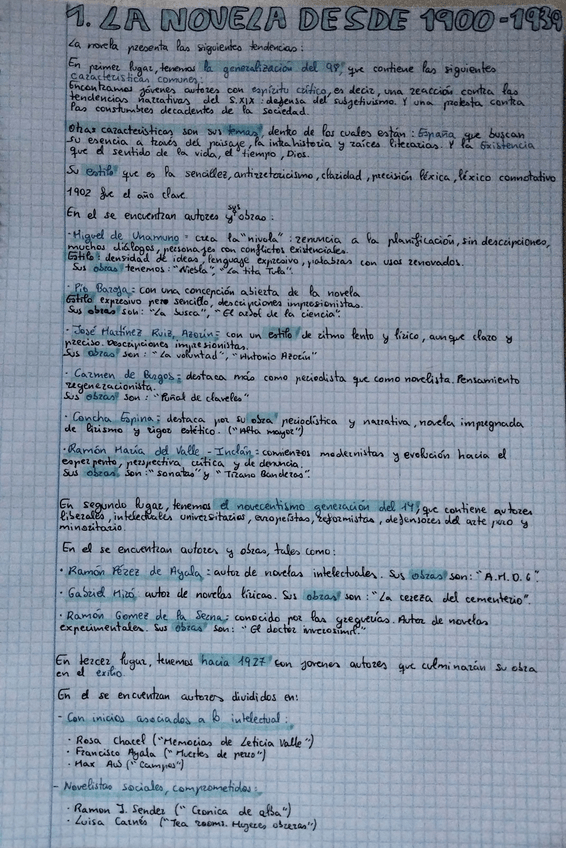 1. LA NOVELA DESDE 1900-1939
La novela presenta las siguientes tendencias:
En primer lugar, tenemos la generalización del 98, que contiene las siguientes
características comunes:
Encontramos jóvenes autores con espíritu crítico, es decir, una reacción contra las
tendencias narrativas del S.XIX: defensa del subjetivismo. Y una protesta contra
las constumbres decadentes de la sociedad.
Otras características son sus temas, dentro de los cuales están: España que buscan
su esencia a través del paisaje, la intrahistoria y raíces literarias. Y la Existencia
que el sentido de la vida, el tiempo, Dios.
Su estilo que es la sencillez, antirretoricismo, claridad, precisión léxica, léxico connotativo
1902 fue el año clave
En el se encuentran autores y sus obras:
· Miguel de Unamuno = crea la "nivola": renuncia a la planificación, sin descripciones,
muchos diálogos, personajes con conflictos existenciales.
Estilo: densidad de ideas, lenguaje expresivo, palabras con usos renovados.
Sus obras tenemos: "Niebla", "La tita Tula".
· Pío Baroja: con una concepción abierta de la novela
Estilo expresivo pero sencillo, descripciones impresionistas.
Sus obras son: "La busca", "El arbol de la ciencia".
· José Martínez Ruiz, Azorín: con un estilo de ritmo lento y lírico, aunque claro y
preciso. Descripciones impresionistas.
Sus obras son: "La voluntad", "Antonio Azorín"
· Carmen de Burgos: destaca más como periodista que como novelista. Pensamiento
regeneracionista.
Sus obras son: "Puñal de claveles"
· Concha Espina: destaca por su obra periodística y narrativa, novela impregnada
de lirismo y rigor estético. ("Alta mayor")
· Ramón María del Valle - Inclán: comienzos modernistas y evolución hacia el
esperpento, perspectiva crítica y de denuncia.
Sus obras son: "Sonatas" y "Tirano Banderas".
En segundo lugar, tenemos el novecentismo generación del 14, que contiene autores
liberales, intelectuales universitarios, europeístas, reformistas, defensores del arte puro y
minoritario.
En el se encuentran autores y obras, tales como:
· Ramón Pérez de Ayala: autor de novelas intelectuales. Sus obras son: "A.M.D.G".
· Gabriel Miró autor de novelas líricas. Sus obras son: "La cereza del cementerio".
· Ramón Gomez de la Serna: conocido por las greguerías. Autor de novelas
experimentales. Sus obras son: "El doctor inverosímil."
En tercer lugar, tenemos hacia 1927 con jovenes autores que culminarán su obra
en el exilio.
En el se encuentran autores divididos en:
- Con inicios asociados a lo intelectual:
· Rosa Chacel ("Memorias de Leticia Valle")
· Francisco Ayala ("Muertes de perro")
· Max Aub ("Campos")
- Novelistas sociales, comprometidos:
· Ramon J. Sender ("Cronica de alba")
· Luisa Carnés ("Tea rooms. Mujeres obreras")